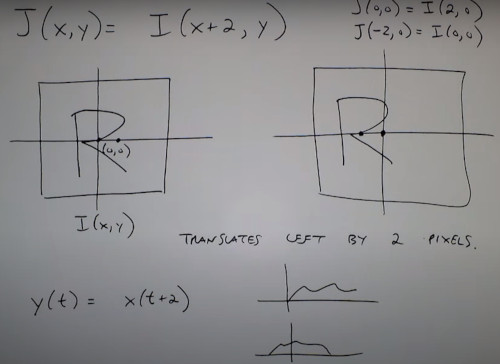 J(x,y) = I(x+2, y)
J(0,0) = I(2,0)
J(-2,0) = I(0,0)
R
R
(0,0)
I(x,y)
TRANSLATES LEFT BY 2 PIXELS.
y(t) = x(t+2)